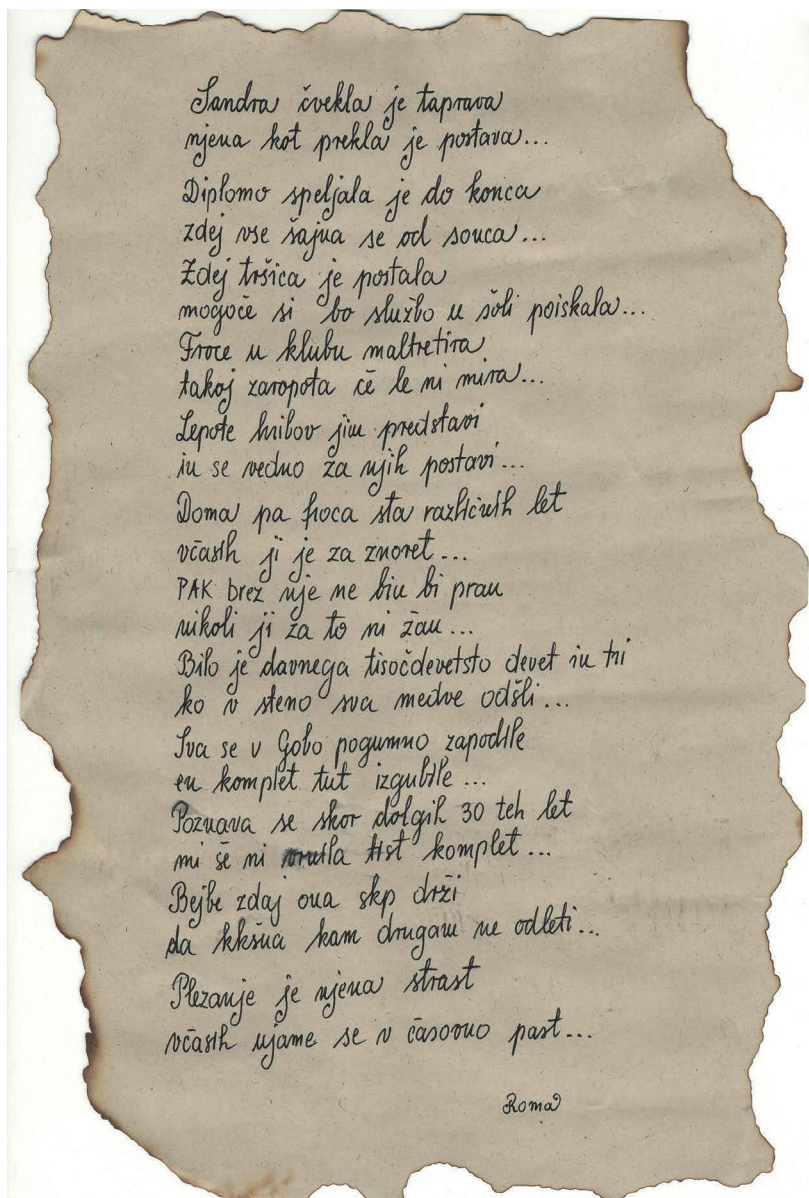 Sandra čvekla je taprava
njena kot prekla je postava...
Diplomo speljala je do konca
zdej vse šajna se od sonca...
Zdej tršica je postala
mogoče si bo službo u šoli poiskala...
Froce u klubu maltretira
takoj zaropota če le ni mira...
Lepote hribov jim predstavi
in se vedno za njih postavi...
Doma pa froca sta različnih let
včasih ji je za znoret...
PAK brez nje ne biu bi prau
nikoli ji za to ni žau...
Bilo je davnega tisočdevetsto devet in tri
ko v steno sva medve odšli...
Sva se v Gobo pogumno zapodile
en komplet tut izgubile...
Poznava se skor dolgih 30 teh let
mi še ni vrnila tist komplet...
Bejbe zdaj ona skp drži
da kkšna kam drugam ne odleti...
Plezanje je njena strast
včasih ujame se v časovno past...
Roma